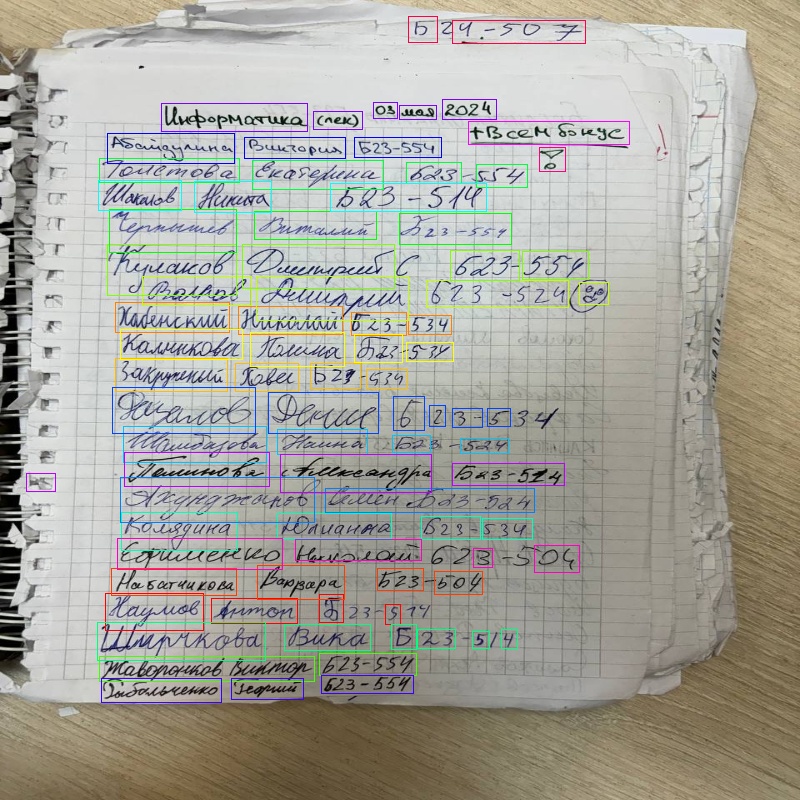 Б24-507
Информатика (лек) 03 мая 2024
+Всем бонус
Абайдулина Виктория Б23-554
Толстова Екатерина Б23-554
Шакалов Никита Б23-514
Чернышев Виталий Б23-554
Кулаков Дмитрий С Б23-554
Волков Дмитрий Б23-524
Хабенский Николай Б23-534
Калинкова Полина Б23-534
Закружный Павел Б23-534
Денис Б23-534
Шамбазова Наина Б23-524
Поминова Александра Б23-514
Ахунджанов Семен Б23-524
Колядина Юлианна Б23-534
Ефименко Николай Б23-504
Набатчикова Варвара Б23-504
Наумов Антон Б23-514
Ширчкова Вика Б23-514
Жаворонков Виктор Б23-554
Георгий Б23-554